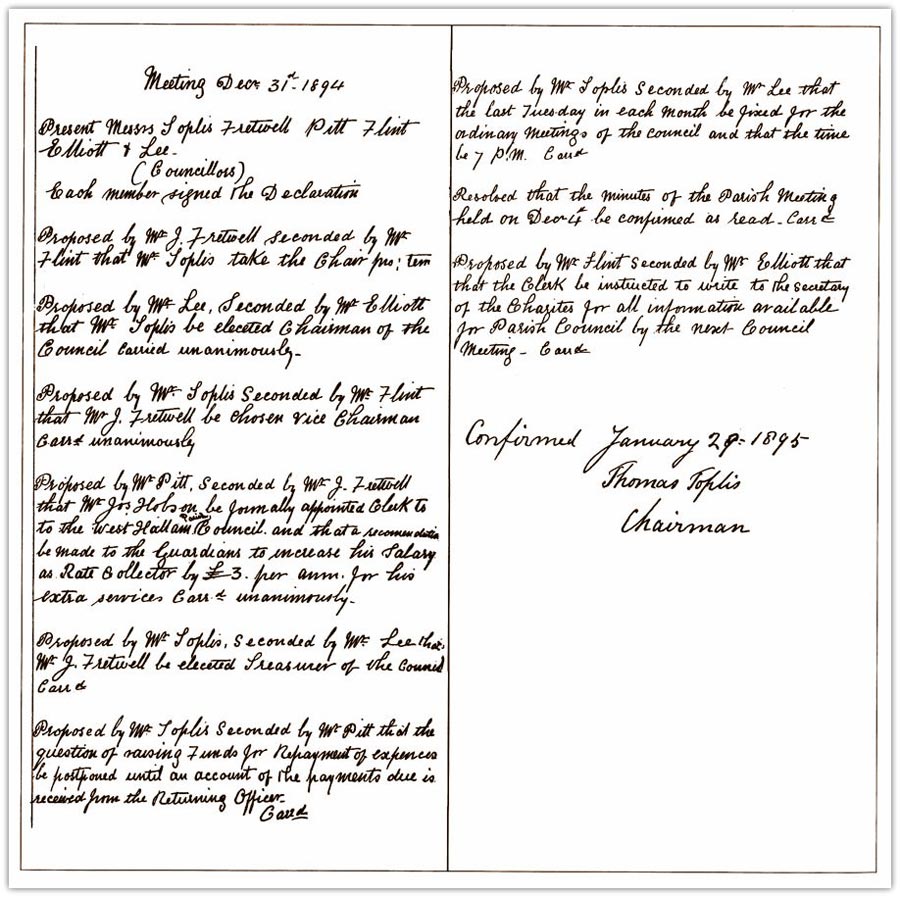 Meeting Decr 31st 1894
Present Messrs Toplis Fretwell Pitt Flint
Elliott & Lee-
(Councillors)
Each member signed the Declaration
Proposed by Mr J. Fretwell seconded by Mr
Flint that Mr Toplis take the Chair pro; tem
Proposed by Mr Lee, Seconded by Mr Elliott
that Mr Toplis be elected Chairman of the
Council Carried unanimously-
Proposed by Mr Toplis Seconded by Mr Flint
that Mr J. Fretwell be chosen Vice Chairman
Carrd unanimously
Proposed by Mr Pitt, Seconded by Mr J. Fretwell
that Mr Jos Hobson be formally appointed Clerk to
to the West Hallam Parish Council. and that a recomendation
be made to the Guardians to increase his Salary
as Rate Collector by £3. per ann. for his
extra services Carrd unanimously-
Proposed by Mr Toplis, Seconded by Mr Lee that
Mr J. Fretwell be elected Treasurer of the Council
Carrd
Proposed by Mr Toplis Seconded by Mr Pitt that the
question of raising Funds for Repayment of expences
be postponed until an account of the payments due is
received from the Returning Officer-
Carrd
Proposed by Mr Toplis Seconded by Mr Lee that
the last Tuesday in each Month be fixed for the
ordinary Meetings of the council and that the time
be 7 P.M. Carrd
Resolved that the minutes of the Parish Meeting
held on Decr 4th be confirmed as read- Carrd
Proposed by Mr Flint Seconded by Mr Elliott that
that the Clerk be instructed to write to the secretary
of the Charites for all information available
for Parish Council by the next Council
Meeting - Carrd
Confirmed January 29-1895
Thomas Toplis
Chairman